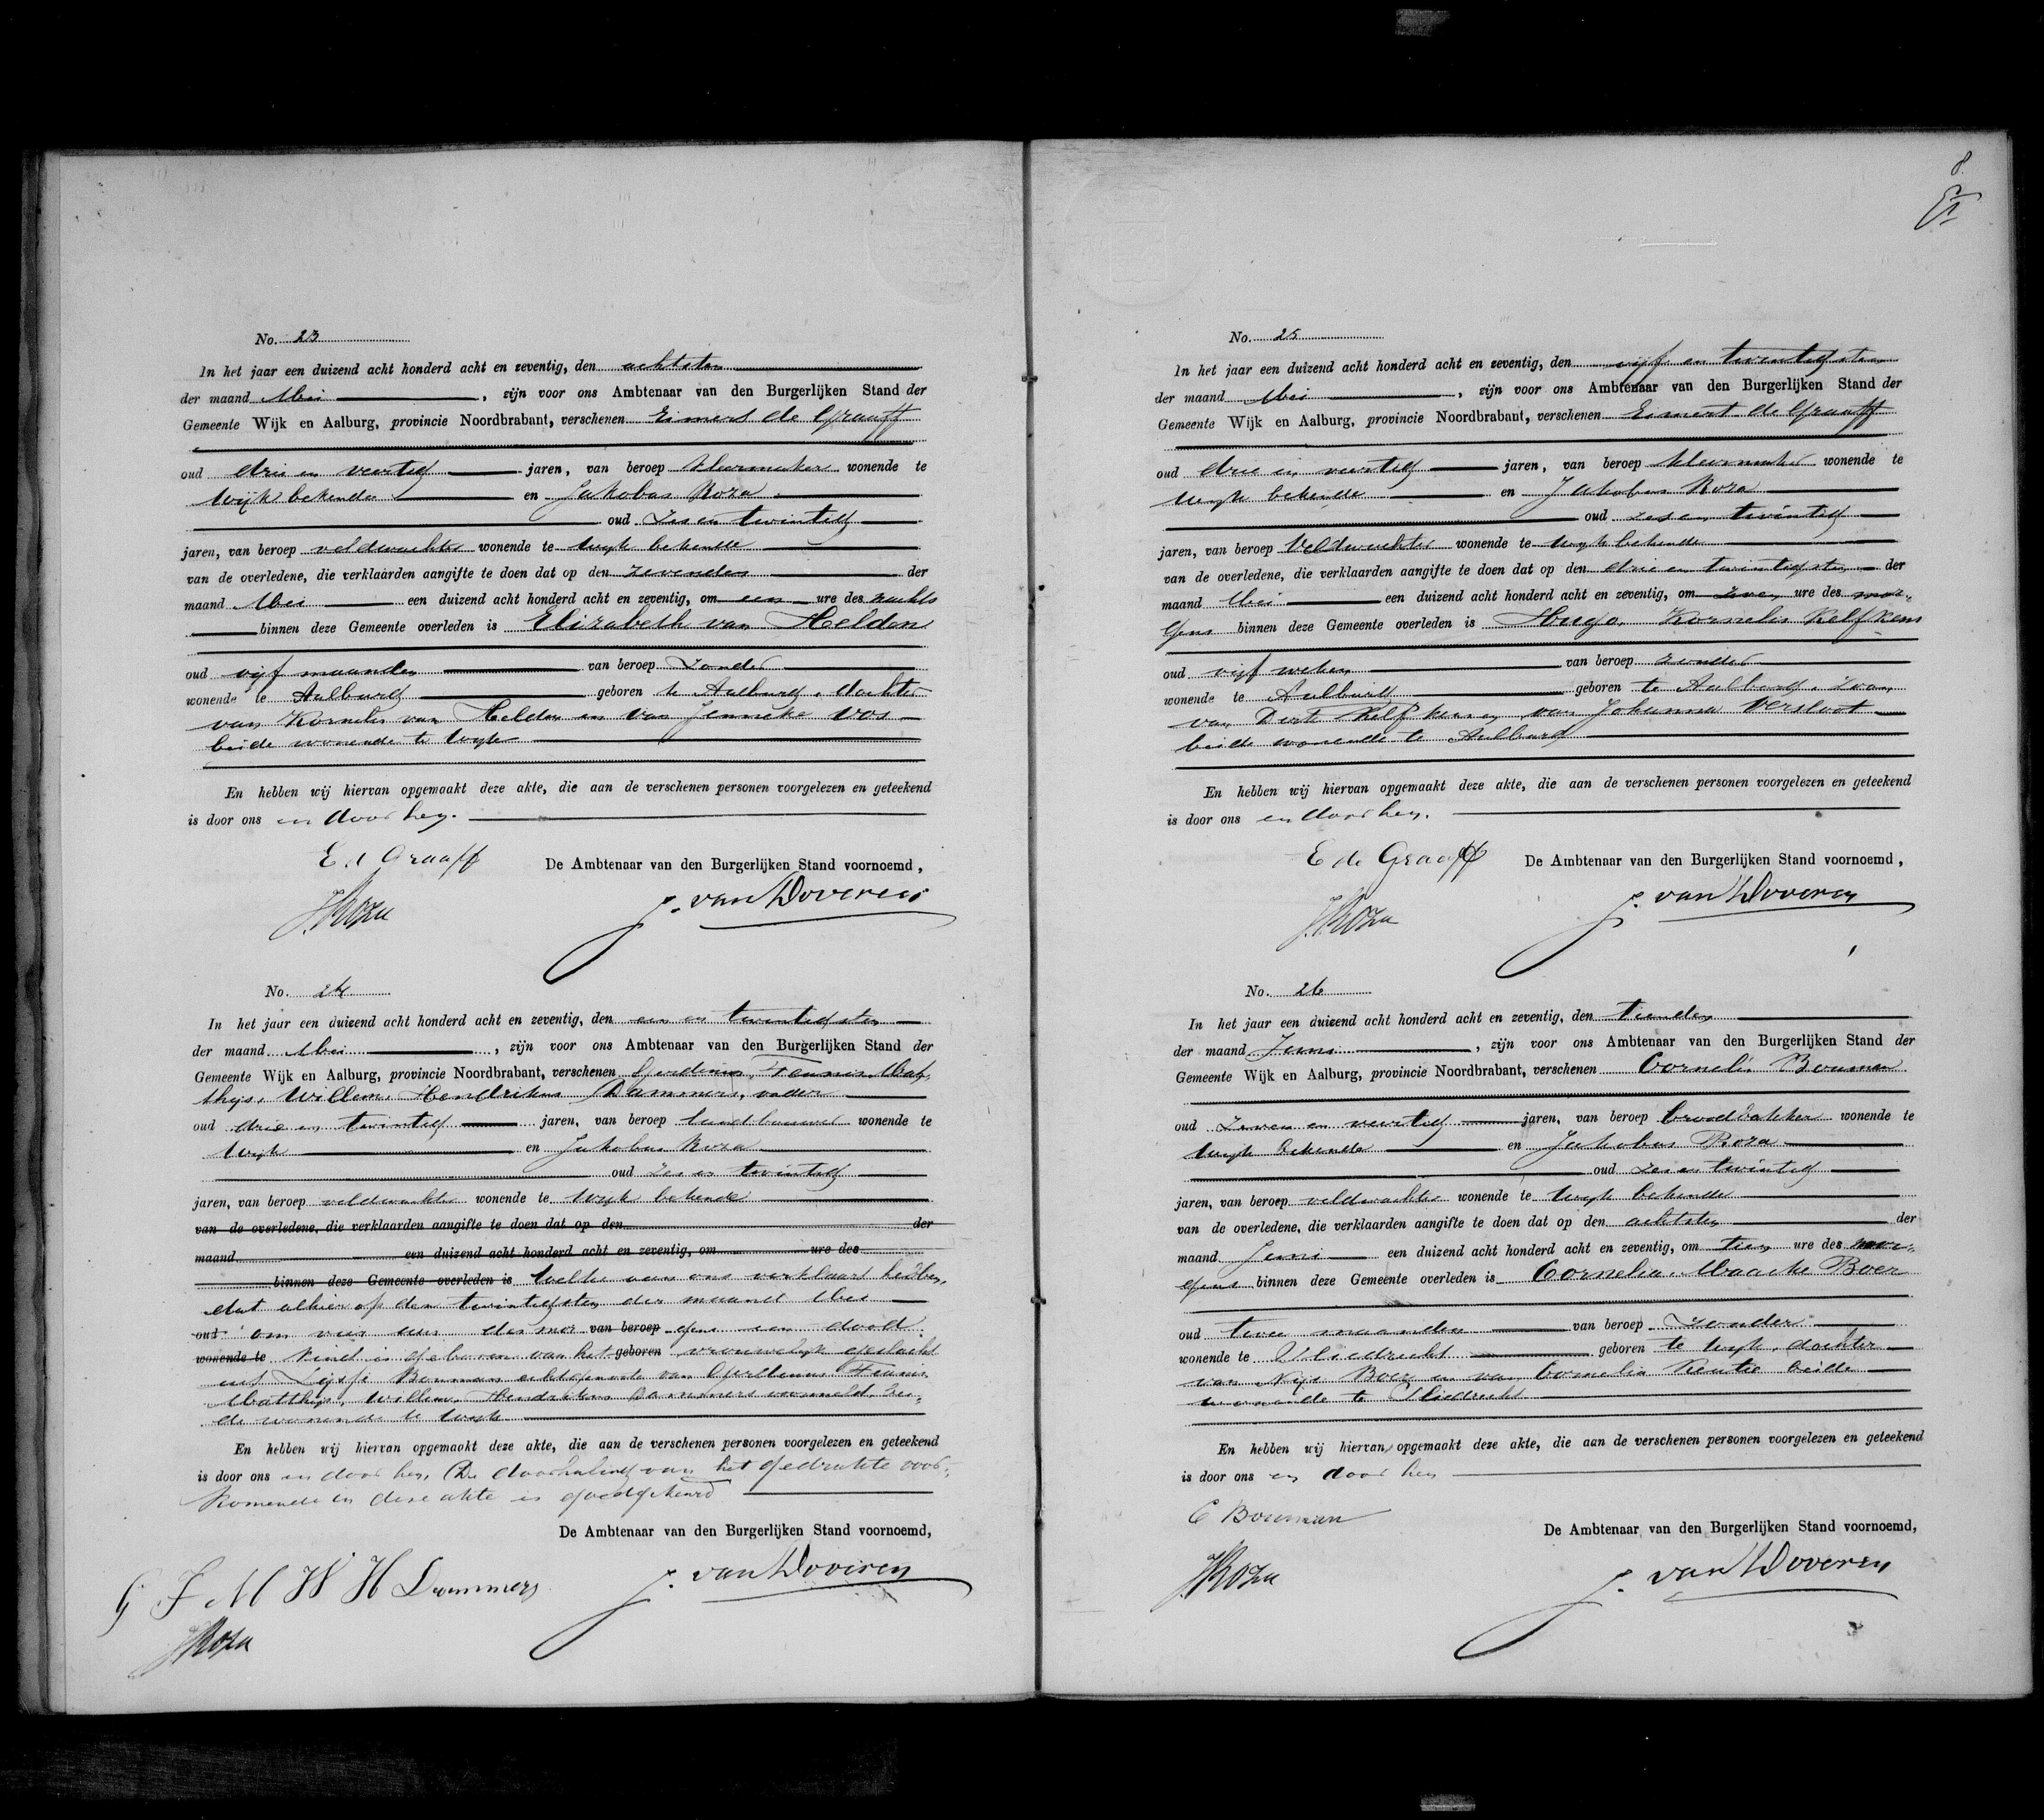 No. 23
In het jaar een duizend acht honderd acht en zeventig, den achtsten
der maand Mei, zijn voor ons Ambtenaar van den Burgerlijken Stand der
Gemeente Wijk en Aalburg, provincie Noordbrabant, verschenen Eimert de Graaff
oud drie en veertig jaren, van beroep kleermaker wonende te
Wijk bekende en Jakobus Roza
oud zes en twintig
jaren, van beroep veldwachter wonende te Wijk bekende
van de overledene, die verklaarden aangifte te doen dat op den zevenden der
maand Mei een duizend acht honderd acht en zeventig, om een ure des nachts
binnen deze Gemeente overleden is Elizabeth van Helden
oud vijf maanden van beroep zonder
wonende te Aalburg geboren te Aalburg, dochter
van Kornelis van Helden en van Jenneke Vos
beide wonende te Wijk
En hebben wij hiervan opgemaakt deze akte, die aan de verschenen personen voorgelezen en geteekend
is door ons en door hen.
E d Graaff
De Ambtenaar van den Burgerlijken Stand voornoemd,
J Roza
J. van Doveren
No. 24
In het jaar een duizend acht honderd acht en zeventig, den een en twintigsten
der maand Mei, zijn voor ons Ambtenaar van den Burgerlijken Stand der
Gemeente Wijk en Aalburg, provincie Noordbrabant, verschenen Gerdinus, Teunis Mat-
thijs, Willem, Hendrikus Dammers, vader
oud drie en twintig jaren, van beroep landbouwer wonende te
Wijk en Jakobus Roza
oud zes en twintig
jaren, van beroep veldwachter wonende te Wijk bekende
van de overledene, die verklaarden aangifte te doen dat op den der
maand een duizend acht honderd acht en zeventig, om ure des
binnen deze Gemeente overleden is Welke aan ons verklaart hebben,
dat alhier op den twintigsten der maand Mei
oud om vier ure des mor van beroep gens een dood
wonende te kind is geboren van het geboren vrouwelijk geslacht
uit Bouman echtgenoote van Gerdinus Teunis
Matthijs, Willem, Hendrikus Dammers voormeld, bei-
de wonende te Wijk
En hebben wij hiervan opgemaakt deze akte, die aan de verschenen personen voorgelezen en geteekend
is door ons en door hen. De doorhaling van het gedrukte voor-
komende in deze akte is goedgekeurd
De Ambtenaar van den Burgerlijken Stand voornoemd,
G T M W H Dammers
J. van Doveren
J Roza
8.
No. 25
In het jaar een duizend acht honderd acht en zeventig, den vijf en twintigsten
der maand Mei, zijn voor ons Ambtenaar van den Burgerlijken Stand der
Gemeente Wijk en Aalburg, provincie Noordbrabant, verschenen Eimert de Graaff
oud drie en veertig jaren, van beroep kleermaker wonende te
Wijk bekende en Jakobus Roza
oud zes en twintig
jaren, van beroep Veldwachter wonende te Wijk bekende
van de overledene, die verklaarden aangifte te doen dat op den drie en twintigsten der
maand Mei een duizend acht honderd acht en zeventig, om ure des mor-
gens binnen deze Gemeente overleden is Hugo Kornelis Kelfkens
oud vijf weken van beroep zonder
wonende te Aalburg geboren te Aalburg, zoon
van Dirk Kelfkens en van Johanna Versloot
beide wonende te Aalburg
En hebben wij hiervan opgemaakt deze akte, die aan de verschenen personen voorgelezen en geteekend
is door ons en door hen.
E de Graaff
De Ambtenaar van den Burgerlijken Stand voornoemd,
J Roza
J. van Doveren
No. 26
In het jaar een duizend acht honderd acht en zeventig, den tienden
der maand Juni, zijn voor ons Ambtenaar van den Burgerlijken Stand der
Gemeente Wijk en Aalburg, provincie Noordbrabant, verschenen Cornelis Bouman
oud zeven en veertig jaren, van beroep broodbakker wonende te
Wijk bekende en Jakobus Roza
oud zes en twintig
jaren, van beroep veldwachter wonende te Wijk bekende
van de overledene, die verklaarden aangifte te doen dat op den achtsten der
maand Juni een duizend acht honderd acht en zeventig, om tien ure des mor-
gens binnen deze Gemeente overleden is Cornelia, Maaike Boer
oud twee maanden van beroep zonder
wonende te Sliedrecht geboren te Wijk, dochter
van Boer en van Cornelia beide
wonende te Sliedrecht
En hebben wij hiervan opgemaakt deze akte, die aan de verschenen personen voorgelezen en geteekend
is door ons en door hen
C Bouman
De Ambtenaar van den Burgerlijken Stand voornoemd,
J Roza
J. van Doveren